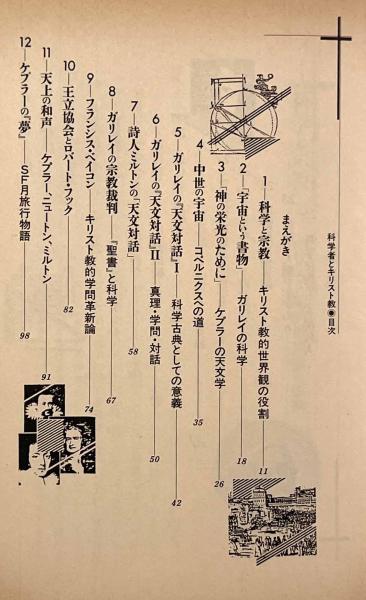 科学者とキリスト教◉目次
まえがき
1―科学と宗教 キリスト教的世界観の役割 11
2―「宇宙という書物」 ガリレイの科学 18
3―「神の栄光のために」 ケプラーの天文学 26
4―中世の宇宙 コペルニクスへの道 35
5―ガリレイの『天文対話』I 科学古典としての意義 42
6―ガリレイの『天文対話』II 真理・学問・対話 50
7―詩人ミルトンの「天文対話」 58
8―ガリレイの宗教裁判 『聖書』と科学 67
9―フランシス・ベイコン キリスト教的学問革新論 74
10―王立協会とロバート・フック 82
11―天上の和声 ケプラー、ニュートン、ミルトン 91
12―ケプラーの『夢』 SF月旅行物語 98